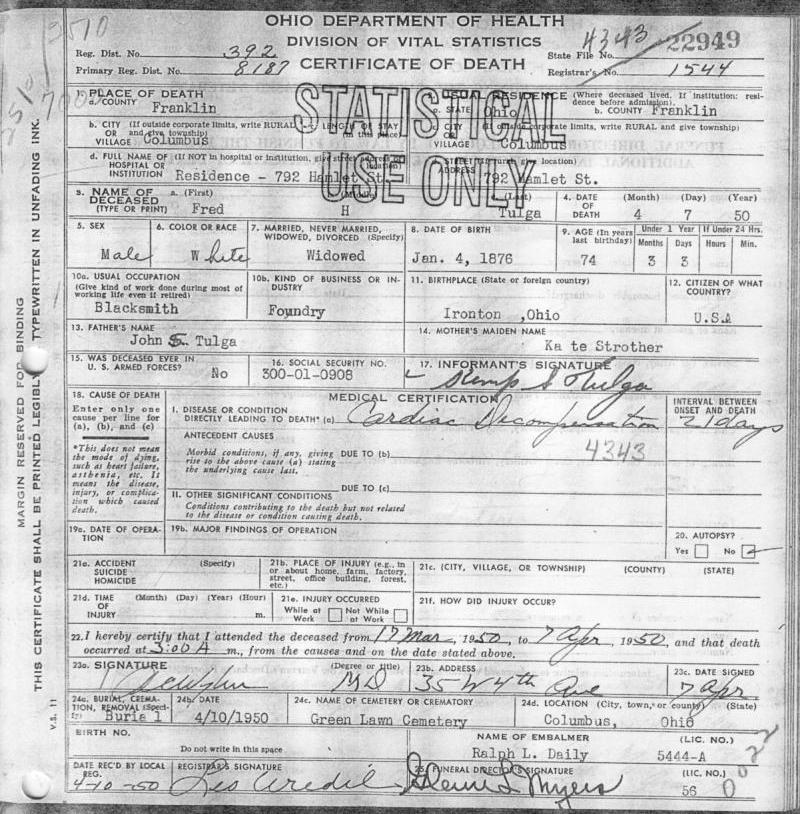 OHIO DEPARTMENT OF HEALTH
DIVISION OF VITAL STATISTICS
CERTIFICATE OF DEATH
Reg. Dist. No. 392
Primary Reg. Dist. No. 8187
State File No. 22949
4343
Registrar's No. 1544
3510
STATISTICAL
USE ONLY
MARGIN RESERVED FOR BINDING
THIS CERTIFICATE SHALL BE PRINTED LEGIBLY TYPEWRITTEN IN UNFADING INK.
V.S. 11
1. PLACE OF DEATH
a. COUNTY Franklin
USUAL RESIDENCE (Where deceased lived. If institution: residence before admission).
a. STATE Ohio b. COUNTY Franklin
b. CITY (If outside corporate limits, write RURAL and give township) OR VILLAGE Columbus
c. LENGTH OF STAY (in this place)
CITY (If outside corporate limits, write RURAL and give township) OR VILLAGE Columbus
d. FULL NAME OF (If NOT in hospital or institution, give street address or location) HOSPITAL OR INSTITUTION Residence - 792 Hamlet St.
STREET (If rural, give location) ADDRESS 792 Hamlet St.
3. NAME OF DECEASED (TYPE OR PRINT) a. (First) Fred (Middle) H (Last) Tulga
4. DATE OF DEATH (Month) (Day) (Year) 4 7 50
5. SEX Male
6. COLOR OR RACE White
7. MARRIED, NEVER MARRIED, WIDOWED, DIVORCED (Specify) Widowed
8. DATE OF BIRTH Jan. 4, 1876
9. AGE (In years last birthday) 74
Under 1 Year Months 3 Days 3
If Under 24 Hrs. Hours Min.
10a. USUAL OCCUPATION (Give kind of work done during most of working life even if retired) Blacksmith
10b. KIND OF BUSINESS OR INDUSTRY Foundry
11. BIRTHPLACE (State or foreign country) Ironton ,Ohio
12. CITIZEN OF WHAT COUNTRY? U.S.A
13. FATHER'S NAME John S. Tulga
14. MOTHER'S MAIDEN NAME Ka te Strother
15. WAS DECEASED EVER IN U. S. ARMED FORCES? No
16. SOCIAL SECURITY NO. 300-01-0908
17. INFORMANT'S SIGNATURE S Tulga
18. CAUSE OF DEATH
Enter only one cause per line for (a), (b), and (c)
*This does not mean the mode of dying, such as heart failure, asthenia, etc. It means the disease, injury, or complication which caused death.
MEDICAL CERTIFICATION
INTERVAL BETWEEN ONSET AND DEATH
I. DISEASE OR CONDITION DIRECTLY LEADING TO DEATH* (a) Cardiac Decompensation 21 days
ANTECEDENT CAUSES
4343
Morbid conditions, if any, giving rise to the above cause (a) stating the underlying cause last.
DUE TO (b)
DUE TO (c)
II. OTHER SIGNIFICANT CONDITIONS
Conditions contributing to the death but not related to the disease or condition causing death.
19a. DATE OF OPERATION
19b. MAJOR FINDINGS OF OPERATION
20. AUTOPSY?
Yes No
21a. ACCIDENT SUICIDE HOMICIDE (Specify)
21b. PLACE OF INJURY (e.g., in or about home, farm, factory, street, office building, forest, etc.)
21c. (CITY, VILLAGE, OR TOWNSHIP) (COUNTY) (STATE)
21d. TIME OF INJURY (Month) (Day) (Year) (Hour) m.
21e. INJURY OCCURRED While at Work Not While at Work
21f. HOW DID INJURY OCCUR?
22. I hereby certify that I attended the deceased from 17 Mar, 1950, to 7 Apr, 1950, and that death
occurred at 3:00 A m., from the causes and on the date stated above.
23a. SIGNATURE (Degree or title) MD
23b. ADDRESS 35 W 4th Ave
23c. DATE SIGNED 7 Apr
24a. BURIAL, CREMATION, REMOVAL (Specify) Buria l
24b. DATE 4/10/1950
24c. NAME OF CEMETERY OR CREMATORY Green Lawn Cemetery
24d. LOCATION (City, town, or county) (State) Columbus, Ohio
BIRTH NO.
Do not write in this space
NAME OF EMBALMER Ralph L. Daily
(LIC. NO.) 5444-A
DATE REC'D BY LOCAL REG. 4-10-50
REGISTRAR'S SIGNATURE
25. FUNERAL DIRECTOR'S SIGNATURE Myers
(LIC. NO.) 56